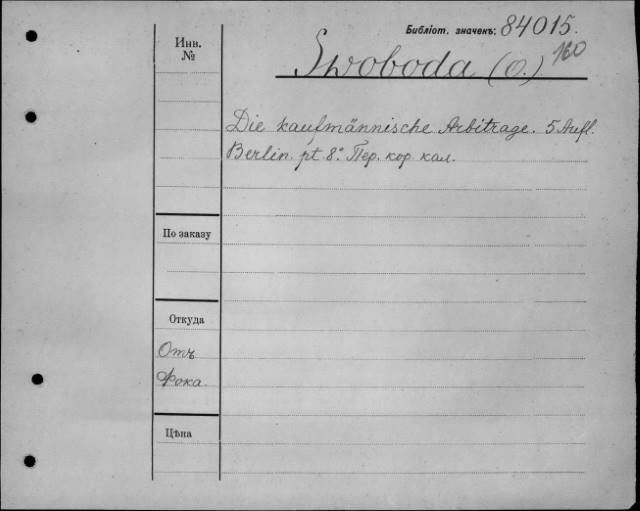 Библіот. значекъ: 84015.
160
Инв.
№
Swoboda (O.)
Die kaufmännische Arbitrage. 5 Aufl.
Berlin. pt. 8°. Пер. кор. кал.
По заказу
Откуда
Отъ
Фока.
Цѣна